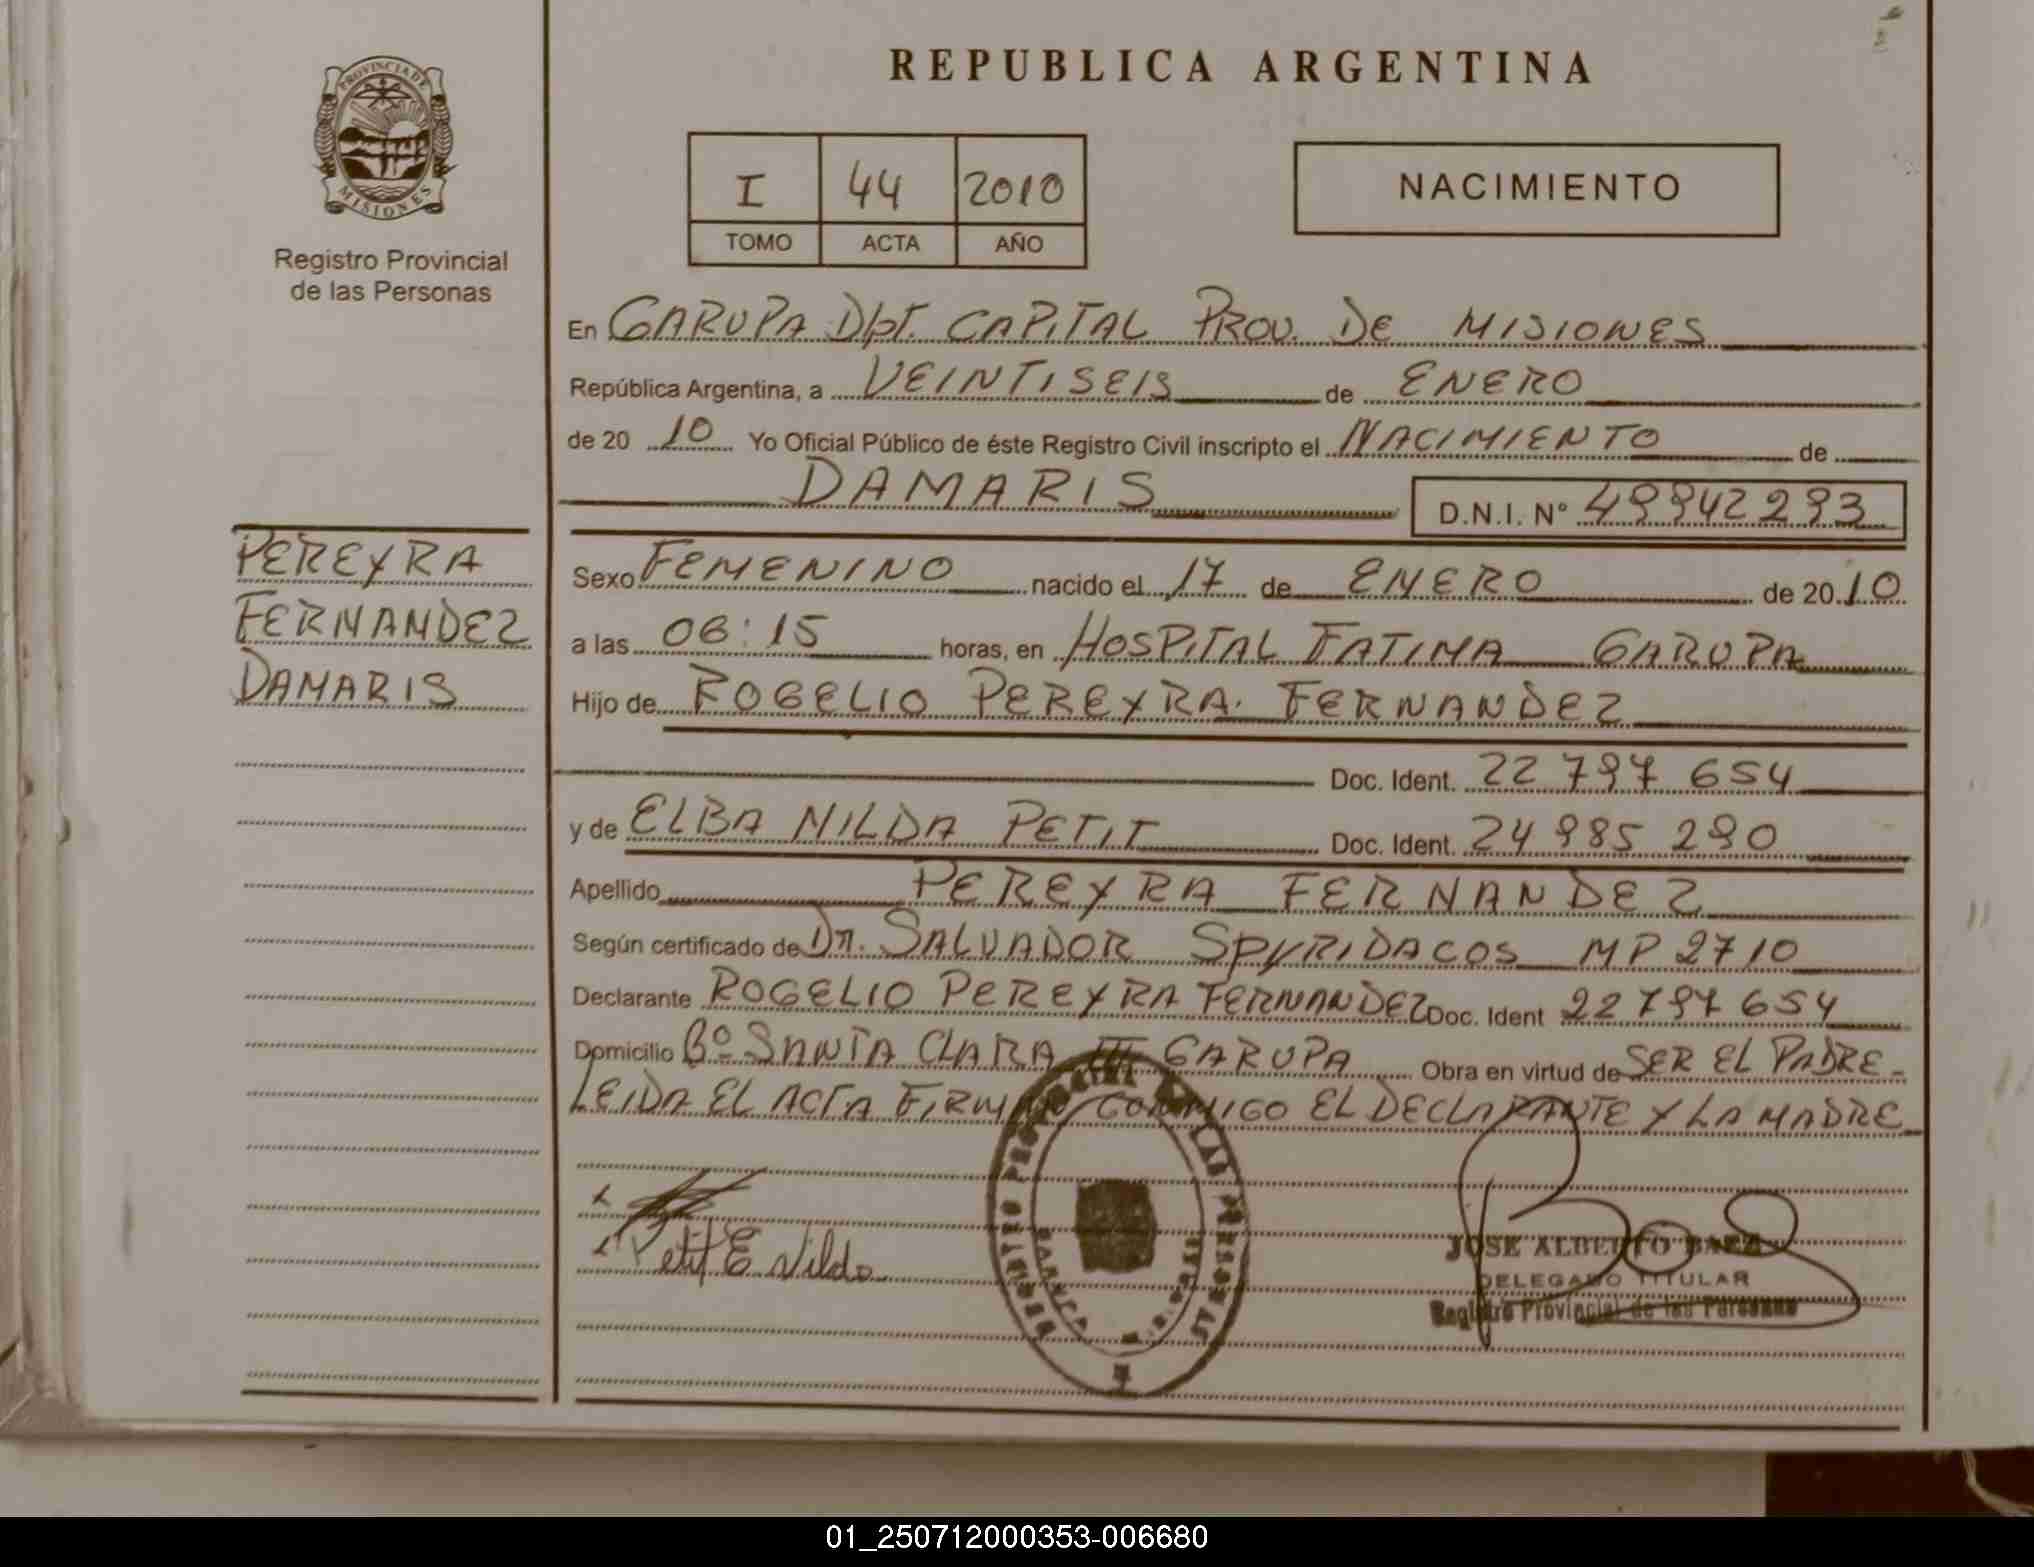 PROVINCIA DE
MISIONES
Registro Provincial
de las Personas
REPUBLICA ARGENTINA
I 44 2010
TOMO ACTA AÑO
NACIMIENTO
En GARUPA Dpt. CAPITAL PROV. DE MISIONES
República Argentina, a VEINTISEIS de ENERO
de 20 10 Yo Oficial Público de éste Registro Civil inscripto el NACIMIENTO de
DAMARIS D.N.I. N° 49942293
PEREYRA
FERNANDEZ
DAMARIS
Sexo FEMENINO nacido el 17 de ENERO de 20 10
a las 06:15 horas, en HOSPITAL FATIMA GARUPA
Hijo de ROGELIO PEREYRA FERNANDEZ
Doc. Ident. 22 797 654
y de ELBA NILDA PETIT Doc. Ident. 24 985 290
Apellido PEREYRA FERNANDEZ
Según certificado de Dr. SALVADOR SPYRIDACOS MP 2710
Declarante ROGELIO PEREYRA FERNANDEZ Doc. Ident 22 797 654
Domicilio B° SANTA CLARA III GARUPA Obra en virtud de SER EL PADRE-
LEIDA EL ACTA FIRMAN CONMIGO EL DECLARANTE Y LA MADRE
Petit E Nilda
REGISTRO PROVINCIAL DE LAS PERSONAS
JOSE ALBERTO BAEZ
DELEGADO TITULAR
Registro Provincial de las Personas
01_250712000353-006680